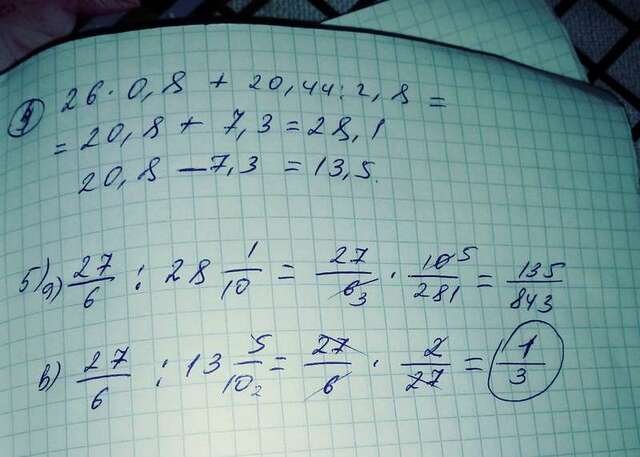 4) 26 · 0,8 + 20,44 : 2,8 =
= 20,8 + 7,3 = 28,1
20,8 – 7,3 = 13,5.
5) а) 27/6 : 28 1/10 = 27/6 3 · 10 5/281 = 135/843
в) 27/6 : 13 5/10 2 = 27/6 · 2/27 = 1/3